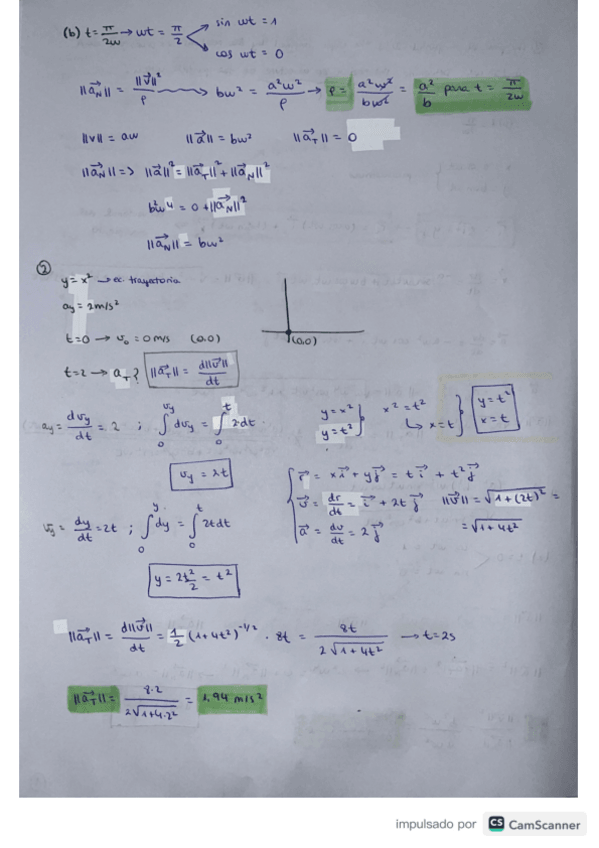 (b) t = π/2w → wt = π/2 → sin wt = 1
→ cos wt = 0
||a⃗N|| = ||v⃗||²/ρ → bw² = a²w²/ρ → ρ = a²w²/bw² = a²/b para t = π/2w
||v|| = aw   ||a⃗|| = bw²   ||a⃗T|| = 0
||a⃗N|| => ||a⃗||² = ||a⃗T||² + ||a⃗N||²
b²w⁴ = 0 + ||a⃗N||²
||a⃗N|| = bw²
②
y = x² → ec trayectoria
ay = 2 m/s²
t=0 → v₀ = 0 m/s (0,0)
(0,0)
t=2 → aT? ||a⃗T|| = d||v⃗||/dt
ay = dvy/dt = 2 ; ∫₀^vy dvy = ∫₀^t 2·dt
vy = 2t
vy = dy/dt = 2t ; ∫₀^y dy = ∫₀^t 2t dt
y = 2t²/2 = t²
y = x² } x² = t² } y = t²
y = t² } ↳ x = t } x = t
r⃗ = x i⃗ + y j⃗ = t i⃗ + t² j⃗
v⃗ = dr/dt = i⃗ + 2t j⃗   ||v⃗|| = √1 + (2t)² =
= √1 + 4t²
a⃗ = dv/dt = 2 j⃗
||a⃗T|| = d||v⃗||/dt = 1/2 (1 + 4t²)^-1/2 · 8t = 8t/2√1 + 4t² → t = 2s
||a⃗T|| = 8·2/2√1+4·2² = 1,94 m/s²
impulsado por CS CamScanner